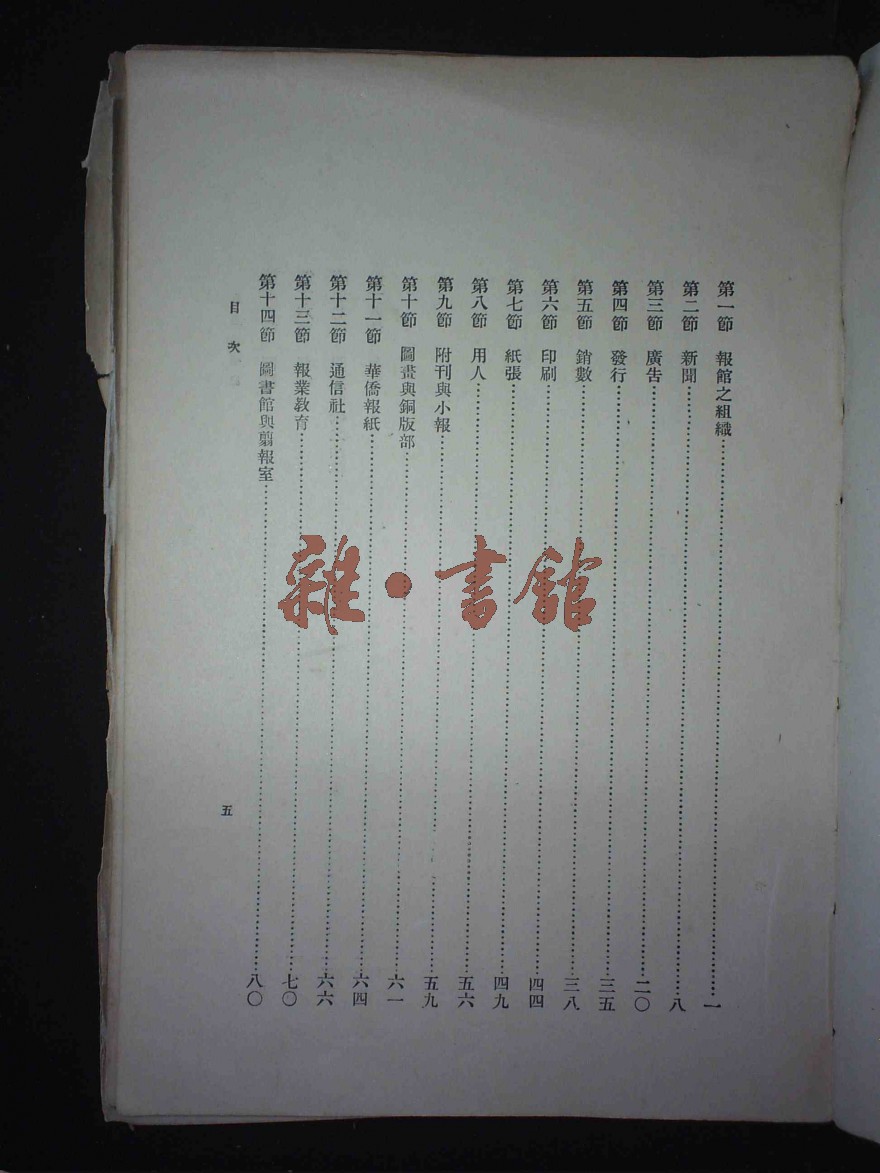 第一節　報館之組織……一
第二節　新聞……八
第三節　廣告……二〇
第四節　發行……三五
第五節　銷數……三八
第六節　印刷……四四
第七節　紙張……四九
第八節　用人……五六
第九節　附刊與小報……五九
第十節　圖畫與銅版部……六一
第十一節　華僑報紙……六四
第十二節　通信社……六六
第十三節　報業敎育……七〇
第十四節　圖書館與翦報室……八〇
目次
五
雜・書館